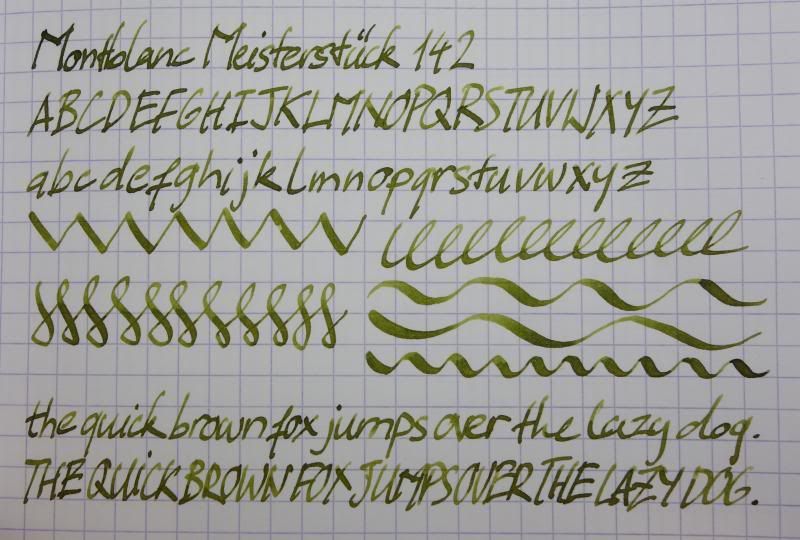 Montblanc Meisterstück 142
ABCDEFGHIJKLMNOPQRSTUVWXYZ
abcdefghijklmnopqrstuvwxyz
the quick brown fox jumps over the lazy dog.
THE QUICK BROWN FOX JUMPS OVER THE LAZY DOG.